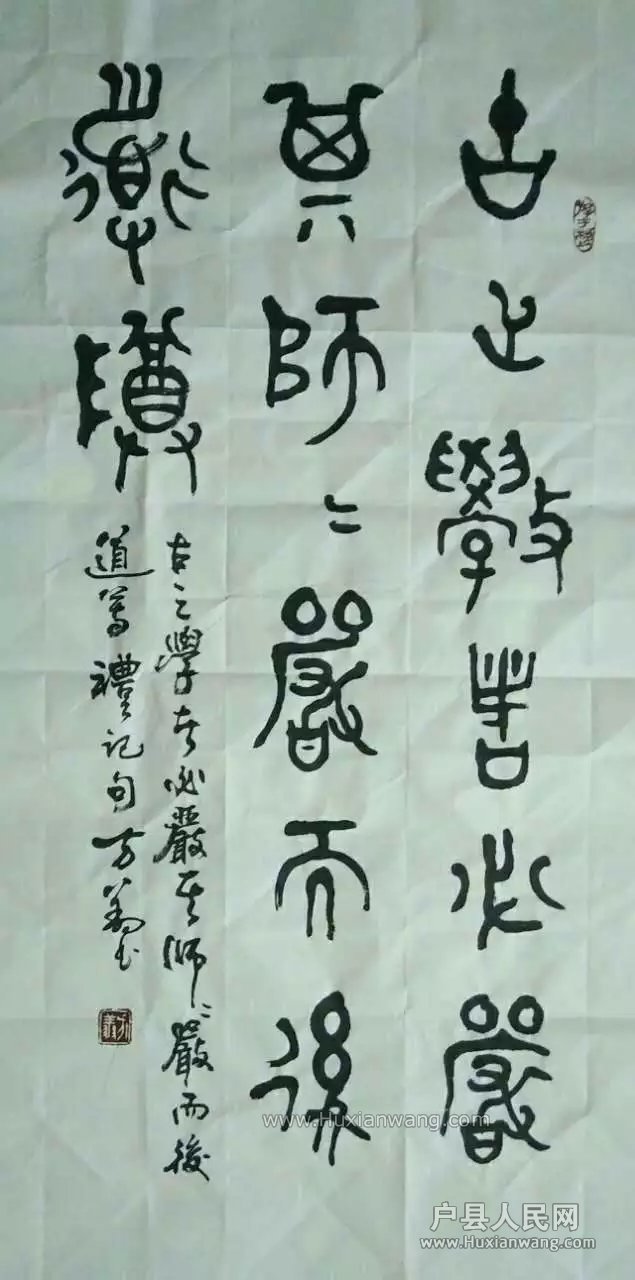 古之學者必嚴
其師〻嚴而後
道尊
古之學者必嚴其師〻嚴而後
道尊 禮記句 方翁书
www.Huxianwang.com
户县人民网
www.Huxianwang.com